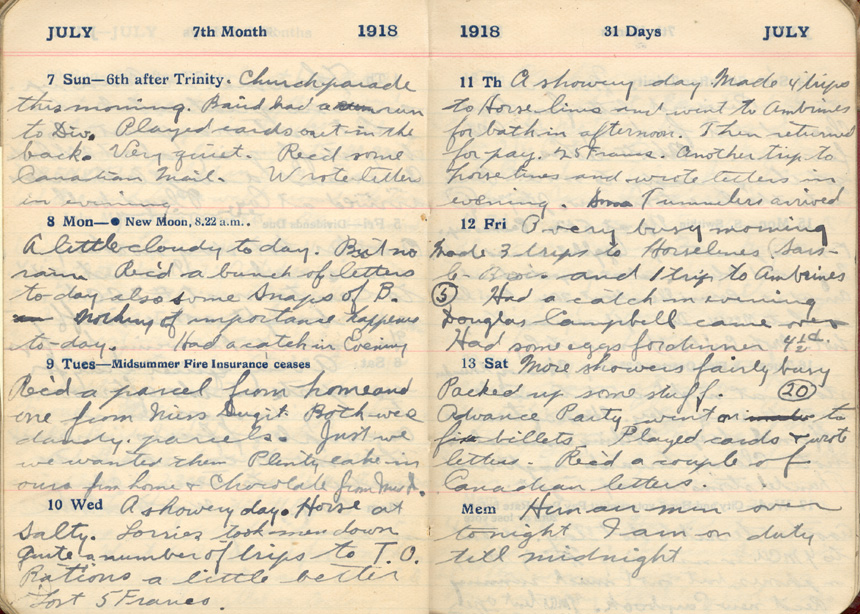 JULY 7th Month 1918
7 Sun—6th after Trinity. Church parade
this morning. Baird had a run
to Div. Played cards out in the
back. Very quiet. Rec'd some
Canadian Mail. Wrote letters
in evening
8 Mon—● New Moon, 8.22 a.m..
A little cloudy to day. But no
rain Rec'd a bunch of letters
to day also some snaps of B.
Nothing of importance happens
to-day. Had a catch in Evening
9 Tues—Midsummer Fire Insurance ceases
Rec'd a parcel from home and
one from Miss Both were
dandy parcels. Just we
we wanted them Plenty cake in
ours fm home + Chocolate from Miss
10 Wed A showery day. Horse at
Salty. Lorries took men down
Quite a number of trips to T.O.
Rations a little better
Lost 5 Francs.
1918 31 Days JULY
11 Th A showery day Made 4 trips
to Horse lines and went to Ambrines
for bath in afternoon. Then returned
for pay. 25 Francs. Another trip to
horselines and wrote letters in
evening. Tummlers arrived
12 Fri A very busy morning
Made 3 trips to Horselines (Sars-
le-Bois and 1 trip to Ambrines
(5) Had a catch in evening
Douglas Campbell came over
Had some eggs for dinner 4½d.
13 Sat More showers fairly busy
Packed up some stuff. (20)
Advance Party went on to
fix billets. Played cards + wrote
letters. Rec'd a couple of
Canadian letters.
Mem Hun air men over
tonight I am on duty
till midnight